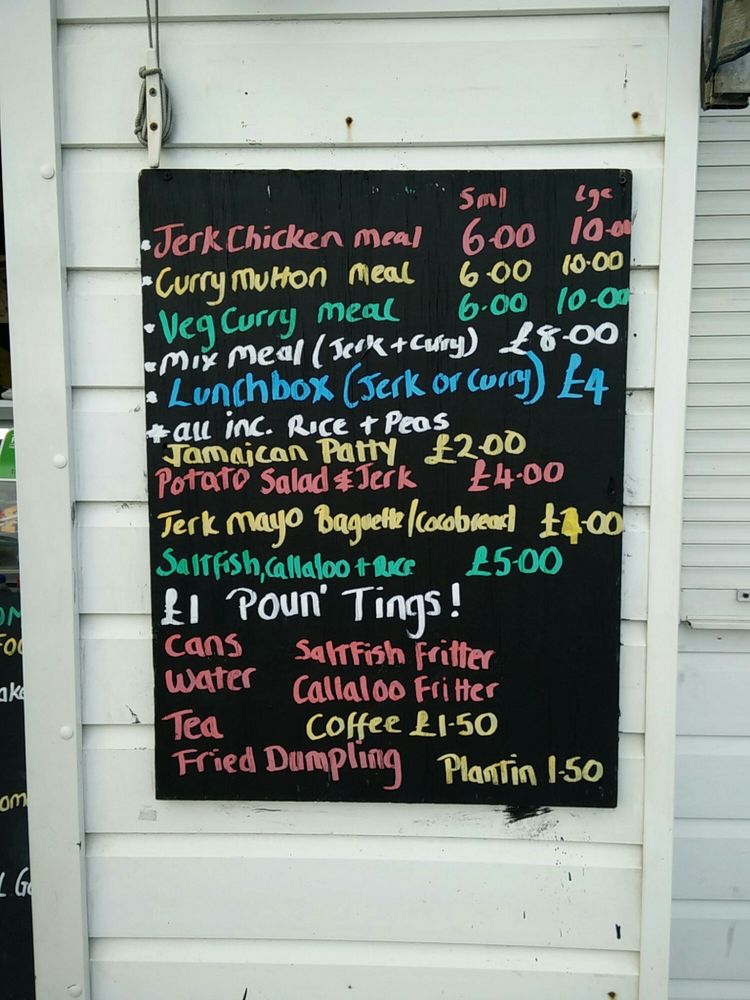 Sml Lge
• Jerk Chicken meal 6.00 10.00
• Curry Mutton meal 6.00 10.00
• Veg Curry meal 6.00 10.00
• Mix meal (Jerk + Curry) £8.00
• Lunchbox (Jerk or Curry) £4
* all inc. Rice + Peas
Jamaican Patty £2.00
Potato Salad & Jerk £4.00
Jerk mayo Baguette/Cocobread £4.00
Saltfish, Callaloo + Rice £5.00
£1 Poun' Tings!
Cans Saltfish Fritter
Water Callaloo Fritter
Tea Coffee £1.50
Fried Dumpling Plantin 1.50